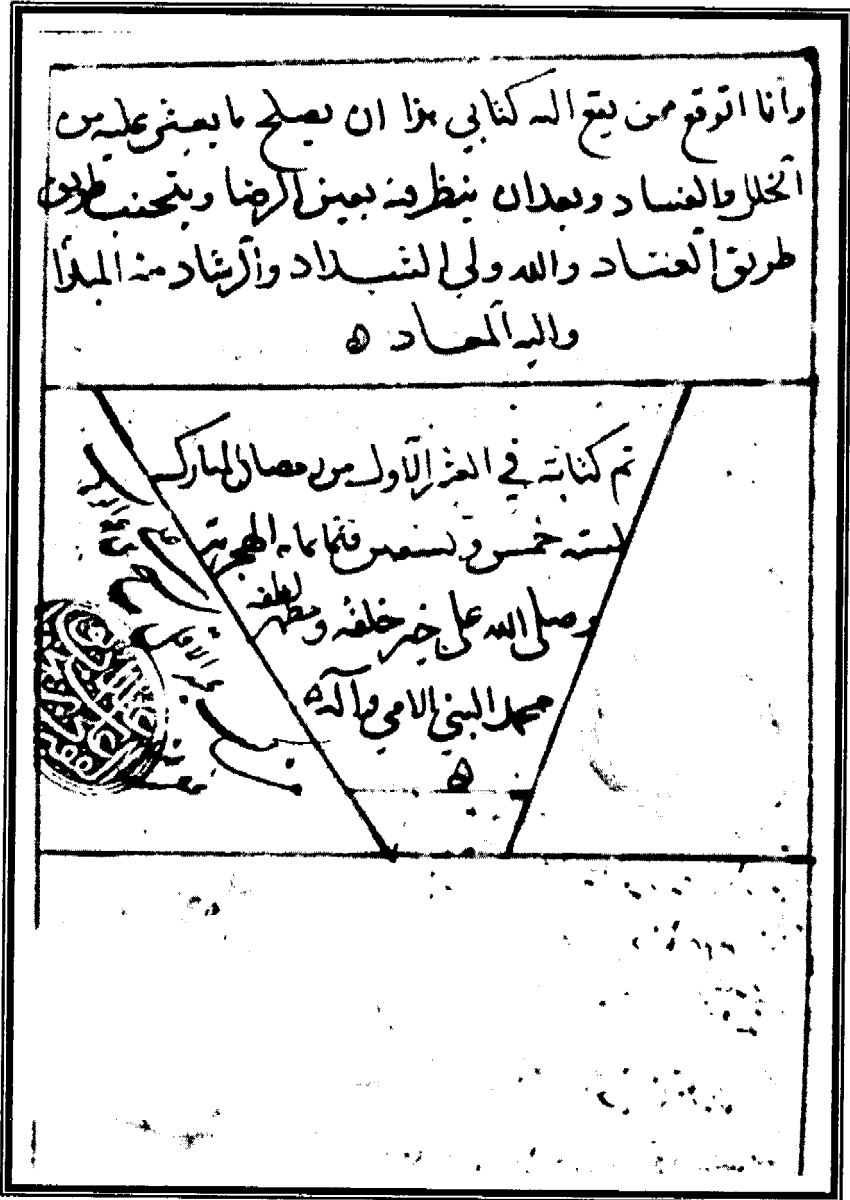 وأنا اتوقع ممن يقع اليه كتابي هذا ان يصلح ما يعثر عليه من
الخلل والفساد وبعد ان ينظر فيه بعين الرضا ويتجنب طريق
طريق العناد والله ولي السداد والرشاد منه المبدأ
واليه المعاد
تم كتابته في العشر الاول من رمضان المبارك
لسنه خمس و فثمانمايه الهجرية
وصلى الله على خير خلقه ومظهر لطفه
محمد النبي الامي وآله